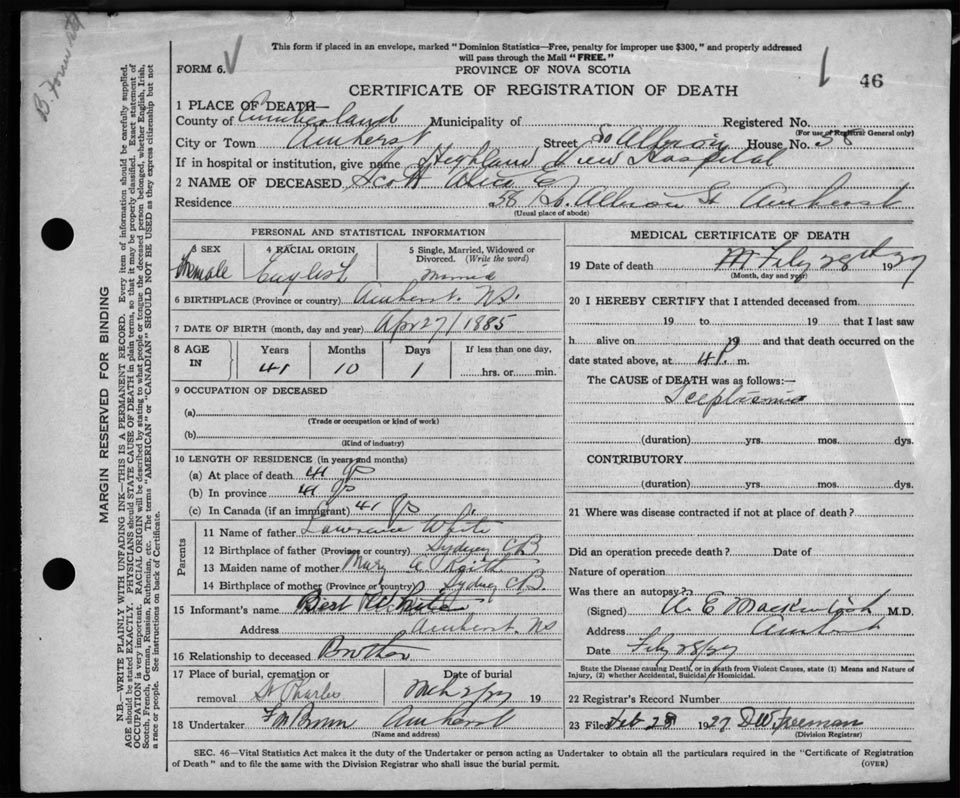 This form if placed in an envelope, marked "Dominion Statistics—Free, penalty for improper use $300," and properly addressed
will pass through the Mail "FREE."
FORM 6.
PROVINCE OF NOVA SCOTIA
46
CERTIFICATE OF REGISTRATION OF DEATH
1 PLACE OF DEATH—
County of Cumberland Municipality of Registered No.
(For use of Registrar General only)
City or Town Amherst Street So Albion House No. 58
If in hospital or institution, give name Highland View Hospital
2 NAME OF DECEASED Scott Alice E
Residence 58 So. Albion St Amherst
(Usual place of abode)
PERSONAL AND STATISTICAL INFORMATION
3 SEX 4 RACIAL ORIGIN 5 Single, Married, Widowed or Divorced. (Write the word)
Female English Married
6 BIRTHPLACE (Province or country) Amherst. NS.
7 DATE OF BIRTH (month, day and year) Apr 27/1885
8 AGE IN Years Months Days If less than one day,
41 10 1 hrs. or min.
9 OCCUPATION OF DECEASED
(a)
(Trade or occupation or kind of work)
(b)
(Kind of industry)
10 LENGTH OF RESIDENCE (in years and months)
(a) At place of death 41
(b) In province 41
(c) In Canada (if an immigrant) 41
Parents
11 Name of father Lawrence White
12 Birthplace of father (Province or country) Sydney CB
13 Maiden name of mother Mary
14 Birthplace of mother (Province or country) Sydney CB.
15 Informant's name Bert White
Address Amherst. NS
16 Relationship to deceased Brother
17 Place of burial, cremation or removal St Charles Date of burial Mch 2/27 19
18 Undertaker F M Brown Amherst
(Name and address)
MEDICAL CERTIFICATE OF DEATH
19 Date of death Feby 28th 1927
(Month, day and year)
20 I HEREBY CERTIFY that I attended deceased from
19 to 19 that I last saw
h alive on 19 and that death occurred on the
date stated above, at 4 P m.
The CAUSE of DEATH was as follows:—
Scepticemia
(duration) yrs. mos. dys.
CONTRIBUTORY
(duration) yrs. mos. dys.
21 Where was disease contracted if not at place of death?
Did an operation precede death? Date of
Nature of operation
Was there an autopsy?
(Signed) A. E. Mackintosh M.D.
Address Amherst
Date Feby 28/27
State the Disease causing Death, or in death from Violent Causes, state (1) Means and Nature of
Injury, (2) whether Accidental, Suicidal or Homicidal.
22 Registrar's Record Number
23 Filed Feb 28 1927 D W Freeman
(Division Registrar)
SEC. 46—Vital Statistics Act makes it the duty of the Undertaker or person acting as Undertaker to obtain all the particulars required in the "Certificate of Registration
of Death" and to file the same with the Division Registrar who shall issue the burial permit.
(OVER)
MARGIN RESERVED FOR BINDING
N.B.—WRITE PLAINLY WITH UNFADING INK—THIS IS A PERMANENT RECORD. Every item of information should be carefully supplied.
AGE should be stated EXACTLY. PHYSICIANS should STATE CAUSE OF DEATH in plain terms, so that it may be properly classified. Exact statement of
OCCUPATION is very important. RACIAL ORIGIN will be described by stating to what people or tongue the deceased person belonged, whether English, Irish,
Scotch, French, German, Russian, Ruthenian, etc. The terms "AMERICAN" or "CANADIAN" SHOULD NOT BE USED as they express citizenship but not
a race or people. See instructions on back of Certificate.